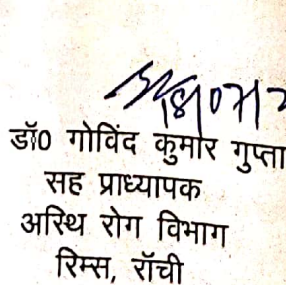 18/07/2
डॉ0 गोविंद कुमार गुप्ता
सह प्राध्यापक
अस्थि रोग विभाग
रिम्स, राँची